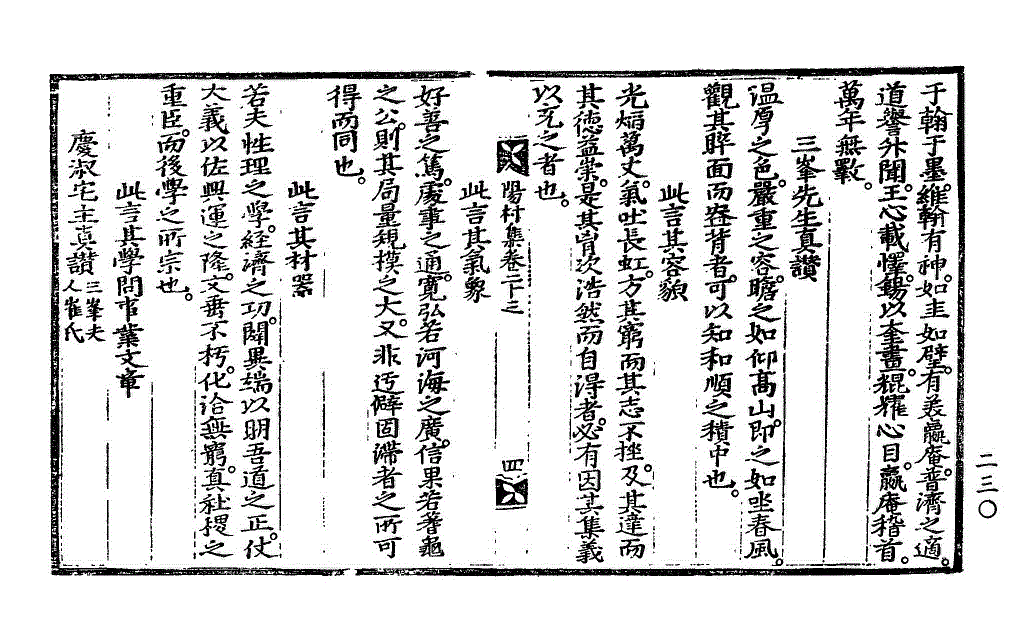 于翰于墨。維翰有神。如圭如璧。有美嬴庵。普濟之適。
道譽升聞。王心載懌。錫以奎畫。焜耀心目。嬴庵稽首。
萬年無斁。
三峯先生眞讚
溫厚之色。嚴重之容。瞻之如仰髙山。即之如坐春風。
觀其睟面而盎背者。可以知和順之積中也。
此言其容貌
光焰萬丈。氣吐長虹。方其窮而其志不挫。及其達而
其德益崇。是其胷次浩然而自得者。必有因其集義
以充之者也。
陽村集卷二十三
四
此言其氣象
好善之篤。處事之通。寬弘若河海之廣。信果若蓍龜
之公。則其局量規模之大。又非迂僻固滯者之所可
得而同也。
此言其材器
若夫性理之學。經濟之功。闢異端以明吾道之正。仗
大義以佐興運之隆。文垂不朽。化洽無窮。眞社稷之
重臣。而後學之所宗也。
此言其學問事業文章
慶淑宅主眞讚 三峯夫
人崔氏
二三〇